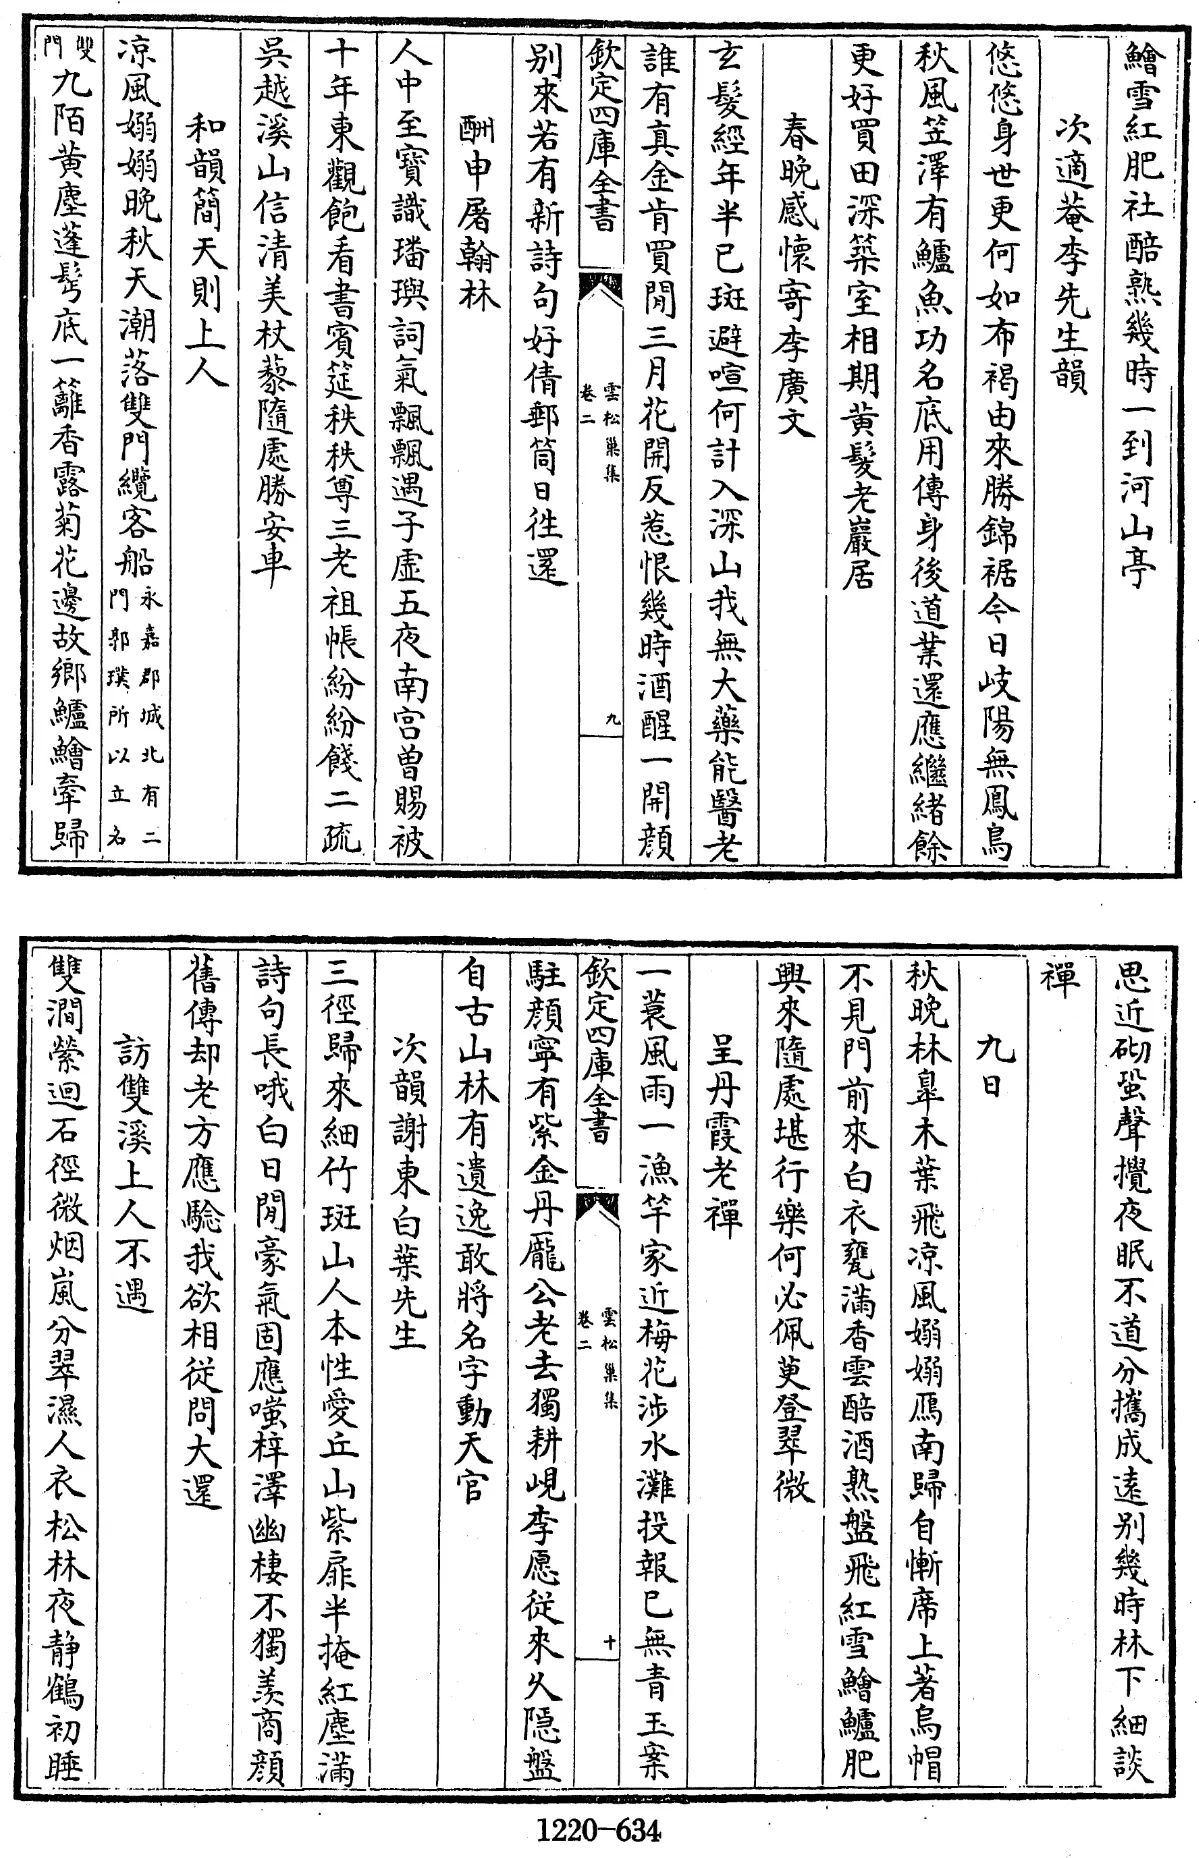 鱠雪紅肥社醅熟幾時一到河山亭
次適菴李先生韻
悠悠身世更何如布褐由來勝錦裾今日岐陽無鳳鳥
秋風笠澤有鱸魚功名底用傳身後道業還應繼緒餘
更好買田深築室相期黄髮老巖居
春晩感懐寄李廣文
玄髮經年半已斑避喧何計入深山我無大藥能醫老
誰有真金肯買閒三月花開反惹恨幾時酒醒一開顔
欽定四庫全書
雲松巢集
卷二
九
别來若有新詩句好倩郵筒日徃還
酬申屠翰林
人中至寳識璠璵詞氣飄飄遇子虚五夜南宫曽賜被
十年東觀飽看書賓筵秩秩尊三老祖帳紛紛餞二疏
吳越溪山信清美杖藜隨處勝安車
和韻簡天則上人
凉風嫋嫋晩秋天潮落雙門纜客船永嘉郡城北有二
門郭璞所以立名
雙
門九陌黄塵蓬髩底一籬香露菊花邊故鄉鱸鱠牽歸
思近砌蛩聲攪夜眠不道分攜成逺别幾時林下細談
禪
九日
秋晩林臯木葉飛凉風嫋嫋鴈南歸自慚席上著烏帽
不見門前來白衣甕滿香雲醅酒熟盤飛紅雪鱠鱸肥
興來隨處堪行樂何必佩萸登翠微
呈丹霞老禪
一蓑風雨一漁竿家近梅花涉水灘投報已無青玉案
欽定四庫全書
雲松巢集
卷二
十
駐顔寧有紫金丹龎公老去獨耕峴李愿從來久隠盤
自古山林有遺逸敢將名字動天官
次韻謝東白葉先生
三徑歸來細竹斑山人本性愛丘山紫扉半掩紅塵滿
詩句長哦白日閒豪氣固應嗤梓澤幽棲不獨羨商顔
舊傳却老方應騐我欲相從問大還
訪雙溪上人不遇
雙澗縈迴石徑微烟嵐分翠濕人衣松林夜静鶴初睡
1220-634